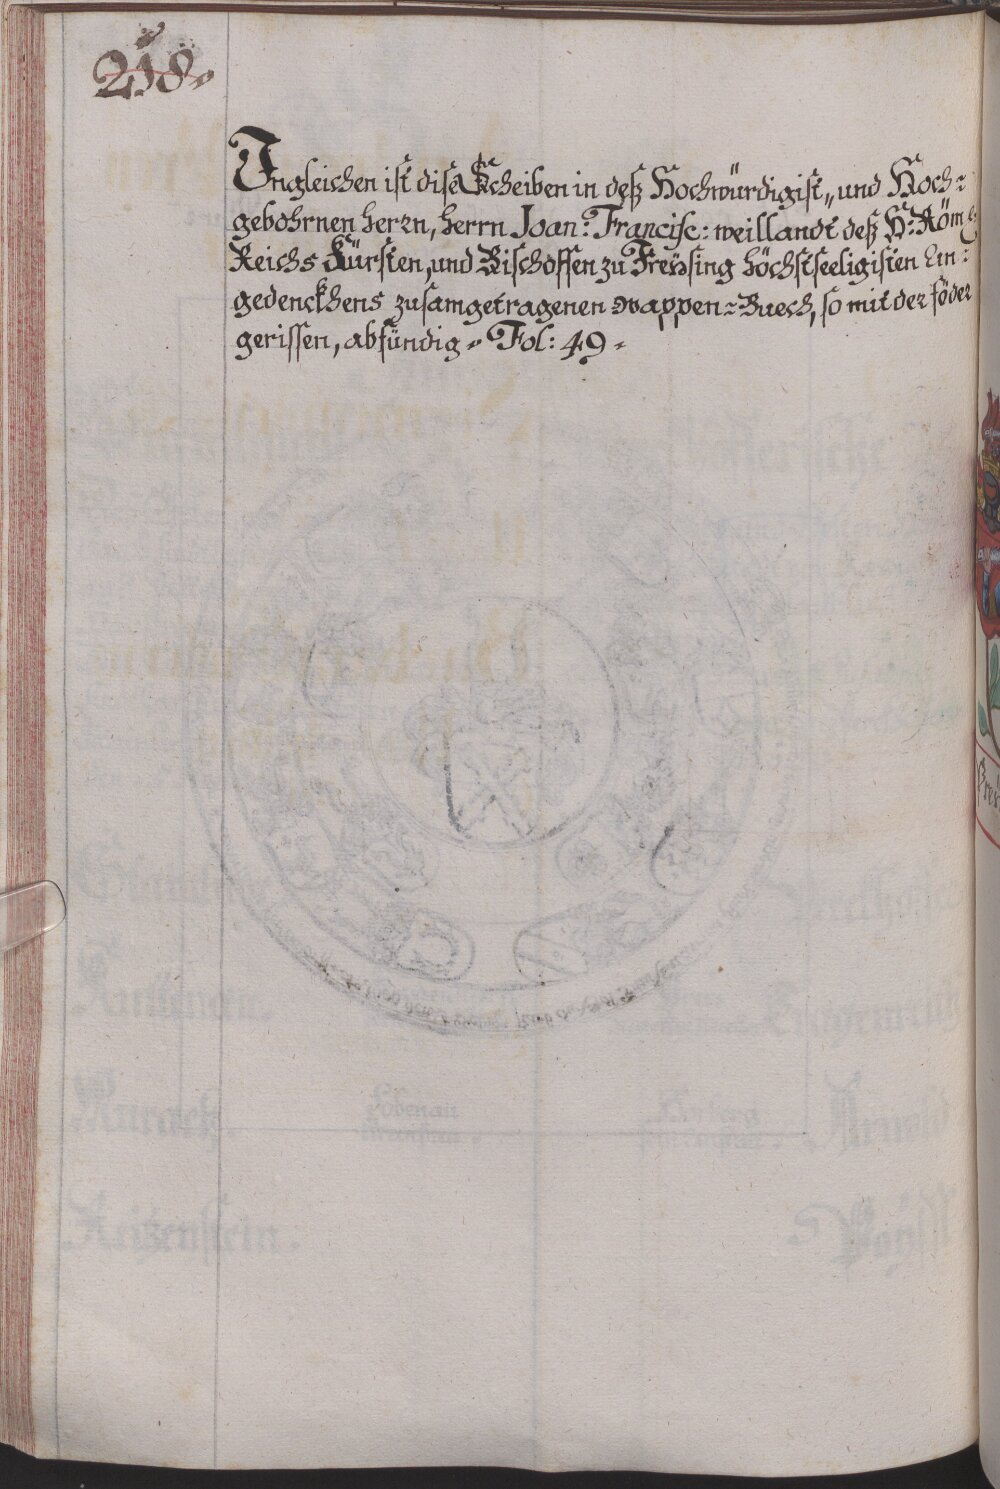 218.
Ingleichen ist dise Scheiben in deß Hochwürdigist„ und Hoch¬
gebohrnen Herrn, Herrn Joan: Francisc: weillandt deß H: Röm:
Reichs Fürsten, und Bischoffen zu Freÿsing höchstseeligisten An¬
gedenckhens zusamgetragenen Wappen-Buech, so mit der föder
gerissen, abfündig. Fol: 49.